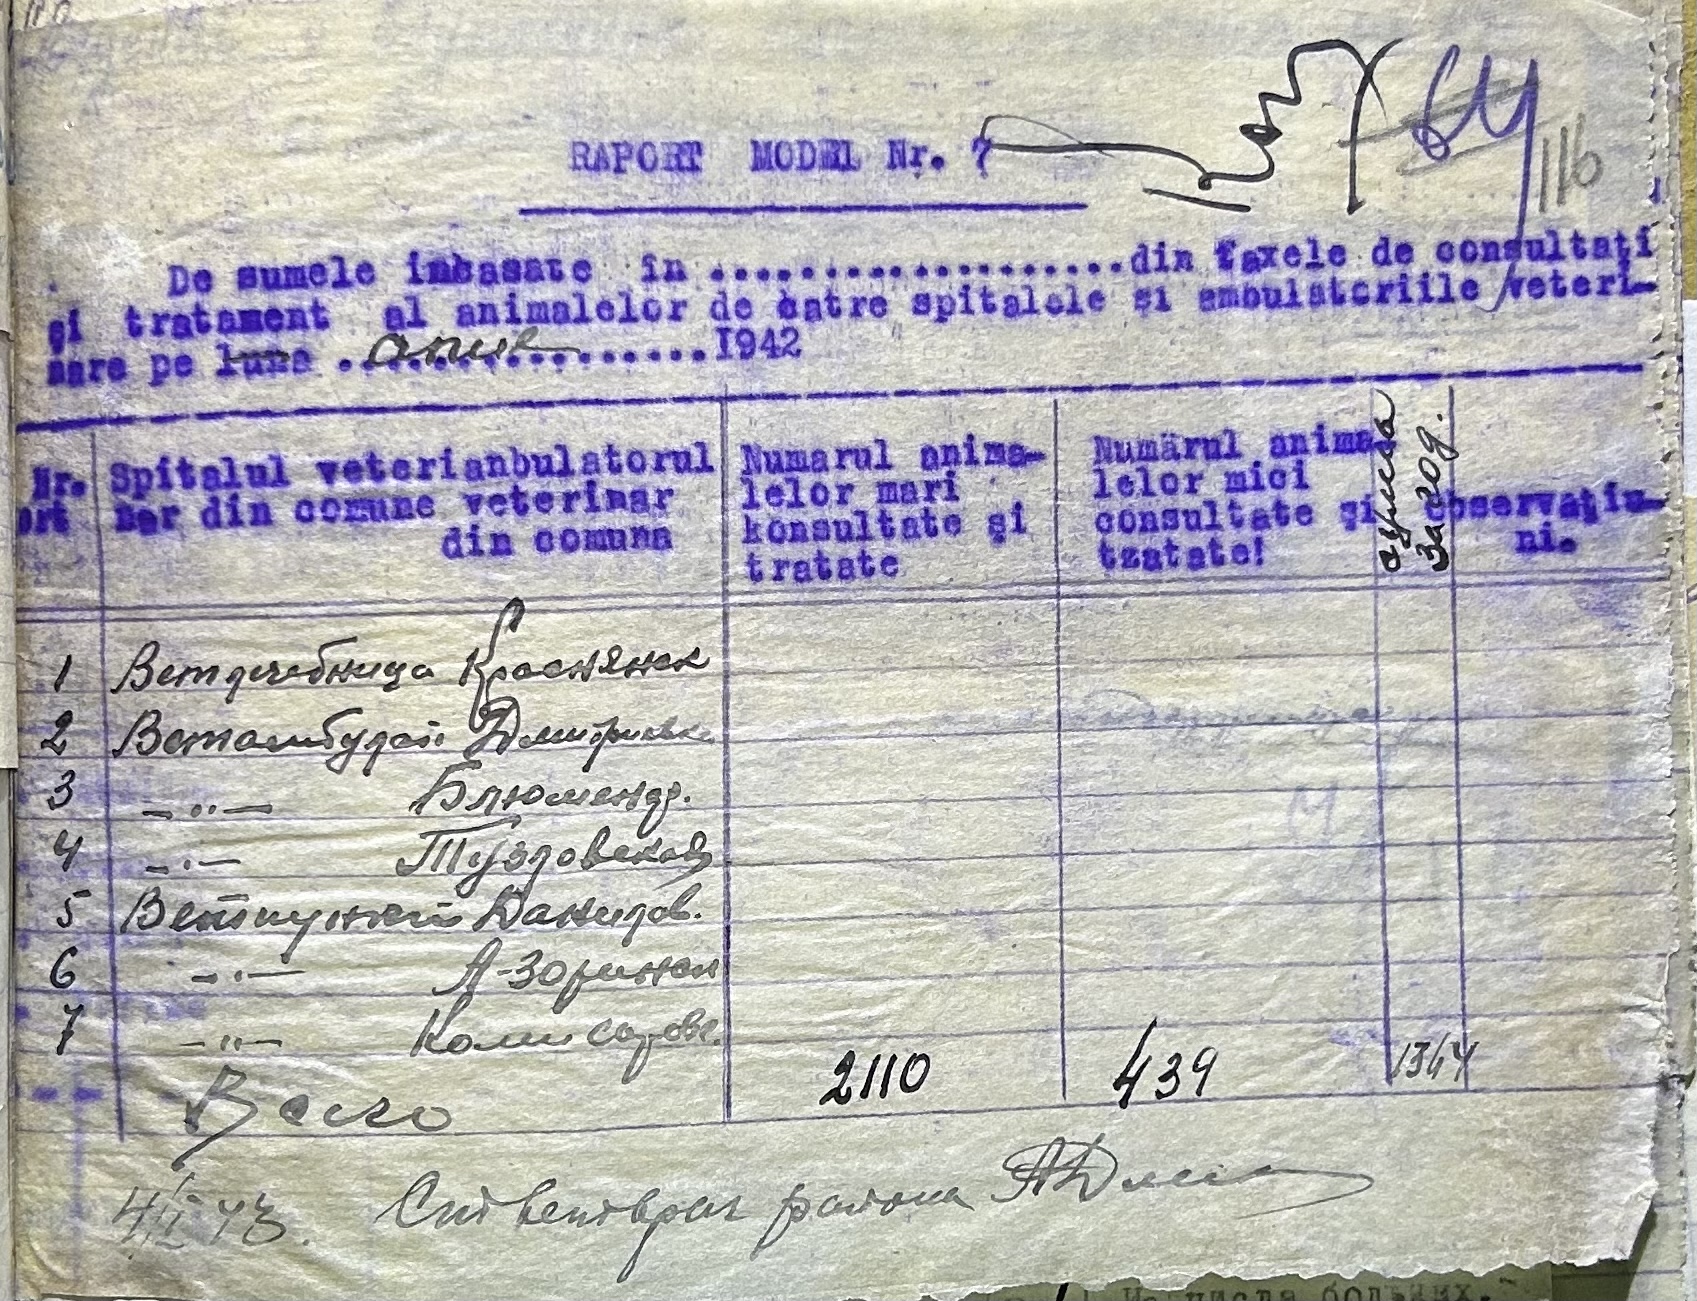 64
116
RAPORT MODEL Nr. 7
De sumele imbasate în ....................din taxele de consultaţi
şi tratament al animalelor de catre spitalele şi ambulatoriile veteri-
nare pe luna .................1942
Nr. ort
Spitalul veterianbulatorul
ner din comune veterinar
din comuna
Numarul anima-
lelor mari
konsultate şi
tratate
Numărul anima
lelor mici
consultate şi
tzatate!
сумма
за год.
observaţiu-
ni.
1 Ветлечебница Краснянск
2 Ветамбулат. Дмитриевк.
3 —"— Блюменф.
4 —"— Тузловская
5 Ветпункт Данилов.
6 —"— А-Зоринск
7 —"— Комисаров.
Всего 2110 439 1364
4/II 43. Ст ветврач района
Из числа больных.